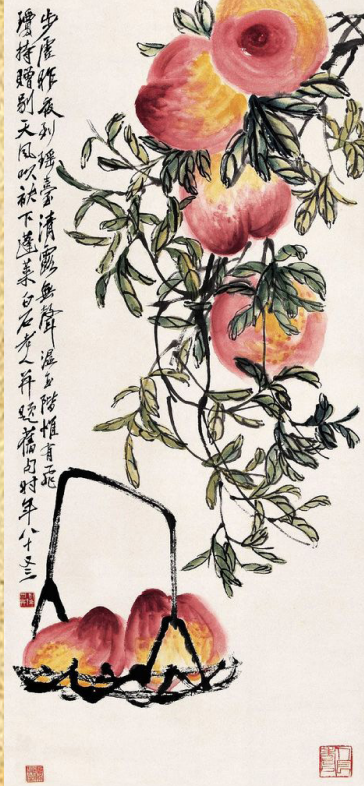 步虚昨夜到瑶臺清露無聲濕玉階惟有飛
瓊持贈別天風吹袂下蓬萊白石老人并題舊句時年八十又三